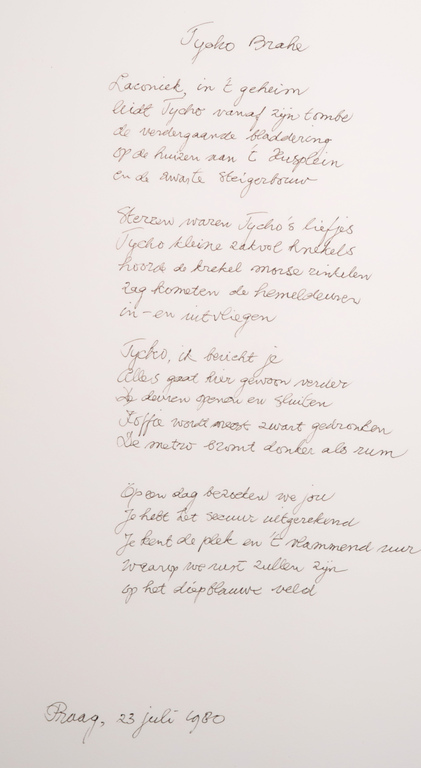 Tycho Brahe
Laconiek, in 't geheim
leidt Tycho vanaf zijn tombe
de verdergaande bladdering
op de huizen aan 't Husplein
en de zwarte steigerbouw
Sterren waren Tycho's liefjes
Tycho kleine zakvol knekels
hoorde de krekel morse rinkelen
zag kometen de hemeldeuren
in- en uitvliegen
Tycho, ik bericht je
Alles gaat hier gewoon verder
De deuren openen en sluiten
Koffie wordt zwart gedronken
De metro bromt donker als rum
Op een dag bezoeken we jou
Je hebt het secuur uitgerekend
Je kent de plek en 't vlammend uur
waarop we rust zullen zijn
op het diepblauwe veld
Praag, 23 juli 1980